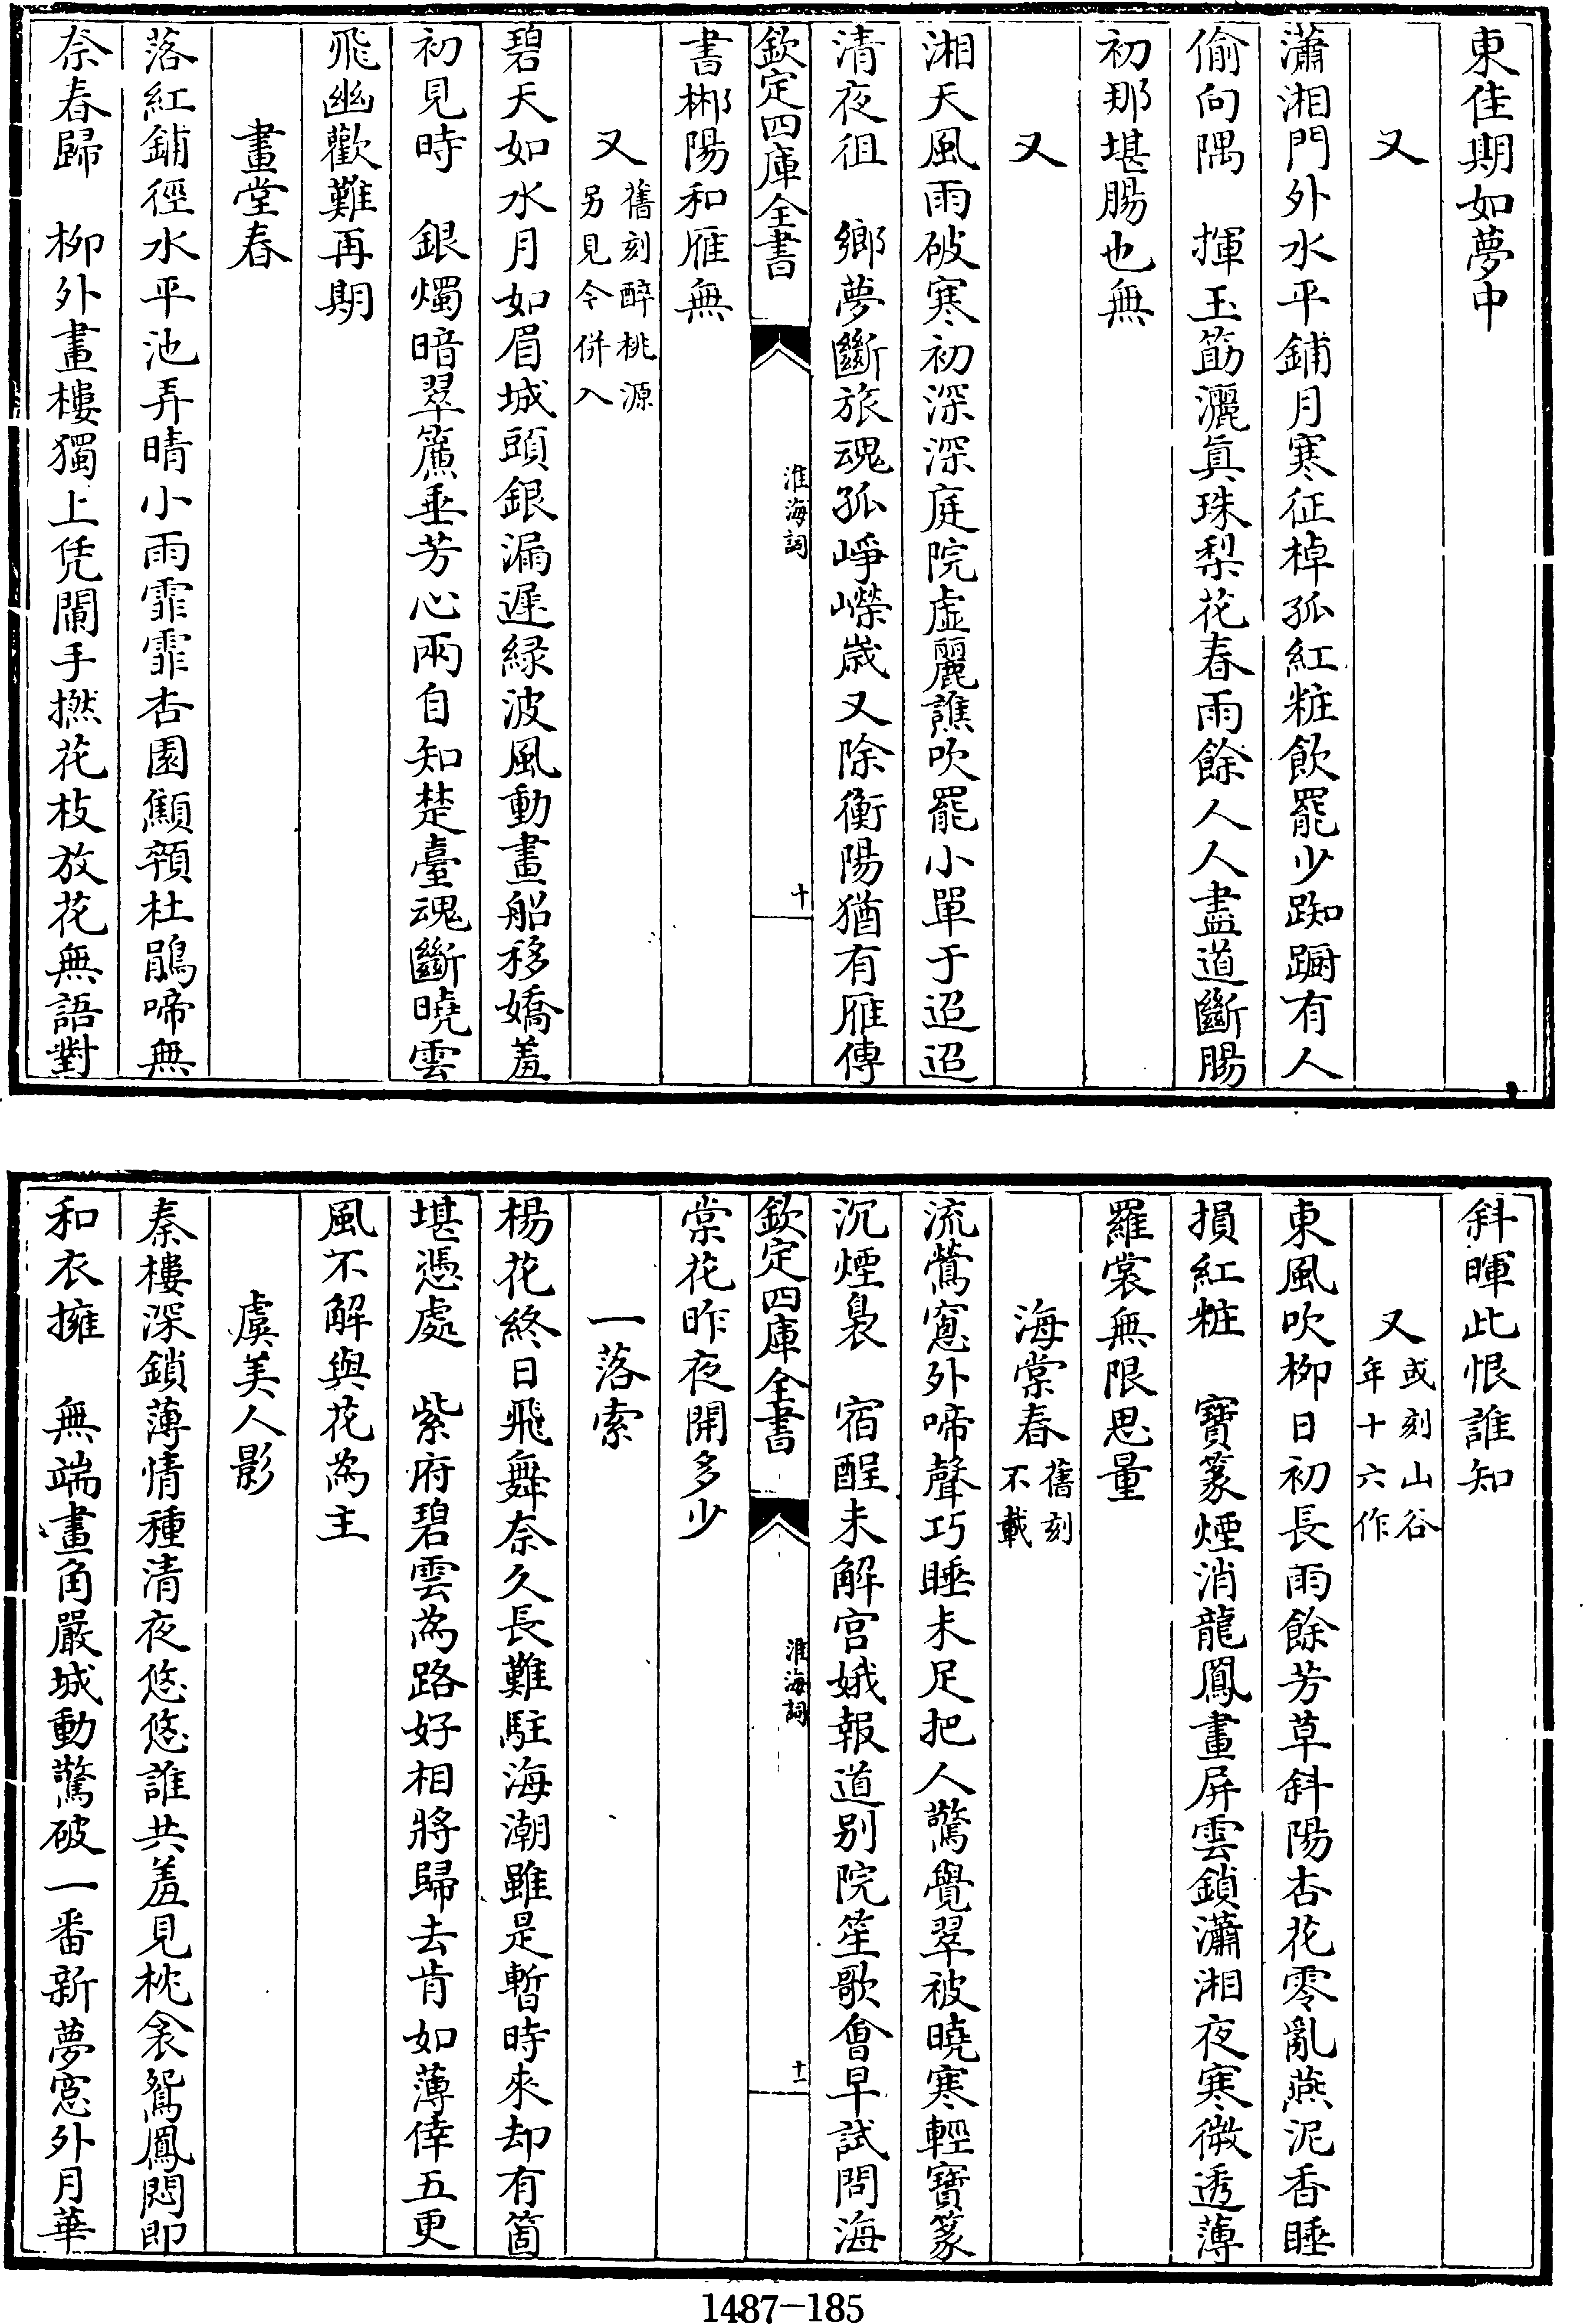 東佳期如夢中
又
瀟湘門外水平鋪月寒征棹孤紅粧飲罷少踟蹰有人
偷向隅　揮玉筯灑真珠梨花春雨餘人人盡道斷腸
初那堪腸也無
又
湘天風雨破寒初深深庭院虛麗譙吹罷小單于迢迢
清夜徂　鄉夢斷旅魂孤崢嶸歲又除衡陽猶有雁傳
欽定四庫全書　淮海詞　十
書郴陽和雁無
又　舊刻醉桃源
另見今併入
碧天如水月如眉城頭銀漏遲緑波風動畫船移嬌羞
初見時　銀燭暗翠簾垂芳心兩自知楚臺魂斷曉雲
飛幽歡難再期
畫堂春
落紅鋪徑水平池弄晴小雨霏霏杏園顦顇杜鵑啼無
奈春歸　柳外畫樓獨上凭闌手撚花枝放花無語對
斜暉此恨誰知
又　或刻山谷
年十六作
東風吹柳日初長雨餘芳草斜陽杏花零亂燕泥香睡
損紅粧　寶篆煙消龍鳳畫屏雲鎖瀟湘夜寒微透薄
羅裳無限思量
海棠春　舊刻
不載
流鶯窻外啼聲巧睡未足把人驚覺翠被曉寒輕寶篆
沉煙裊　宿酲未解宫娥報道别院笙歌會早試問海
欽定四庫全書　淮海詞　十一
棠花昨夜開多少
一落索
楊花終日飛舞奈久長難駐海潮雖是暫時來却有箇
堪憑處　紫府碧雲為路好相將歸去肯如薄倖五更
風不解與花為主
虞美人影
秦樓深鎖薄情種清夜悠悠誰共羞見枕衾鴛鳳悶即
和衣擁　無端畫角嚴城動驚破一番新夢窻外月華
1487-185